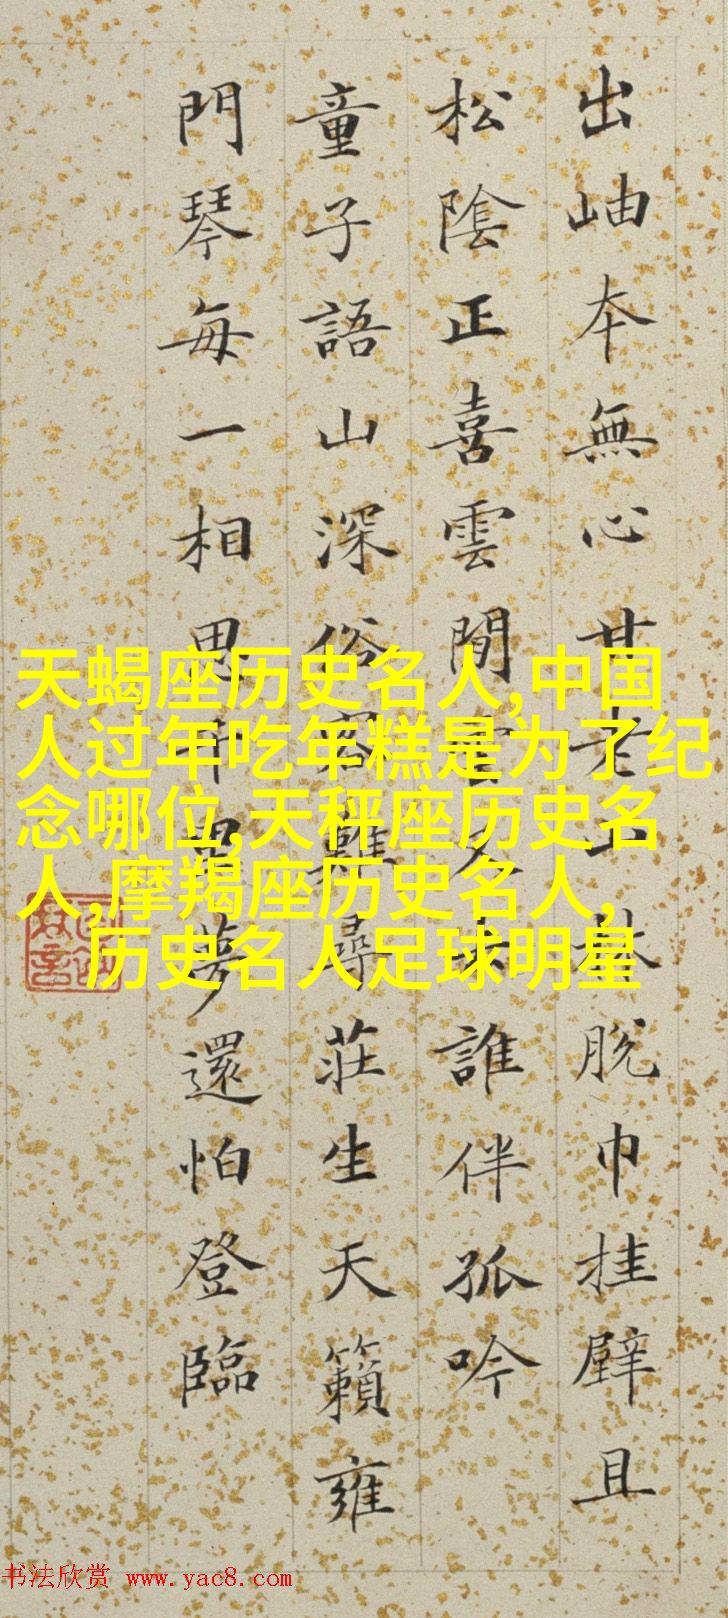 出岫本無心甘老山林脫巾挂壁且
松陰正喜雲閒雲又去誰伴孤吟
童子語山深俗客難尋莊生天籟雍
門琴每一相思夢還怕登臨
天蝎座历史名人,中国
人过年吃年糕是为了纪
念哪位,天秤座历史名
人,摩羯座历史名人,
历史名人足球明星
书法欣赏 www.yac8.com